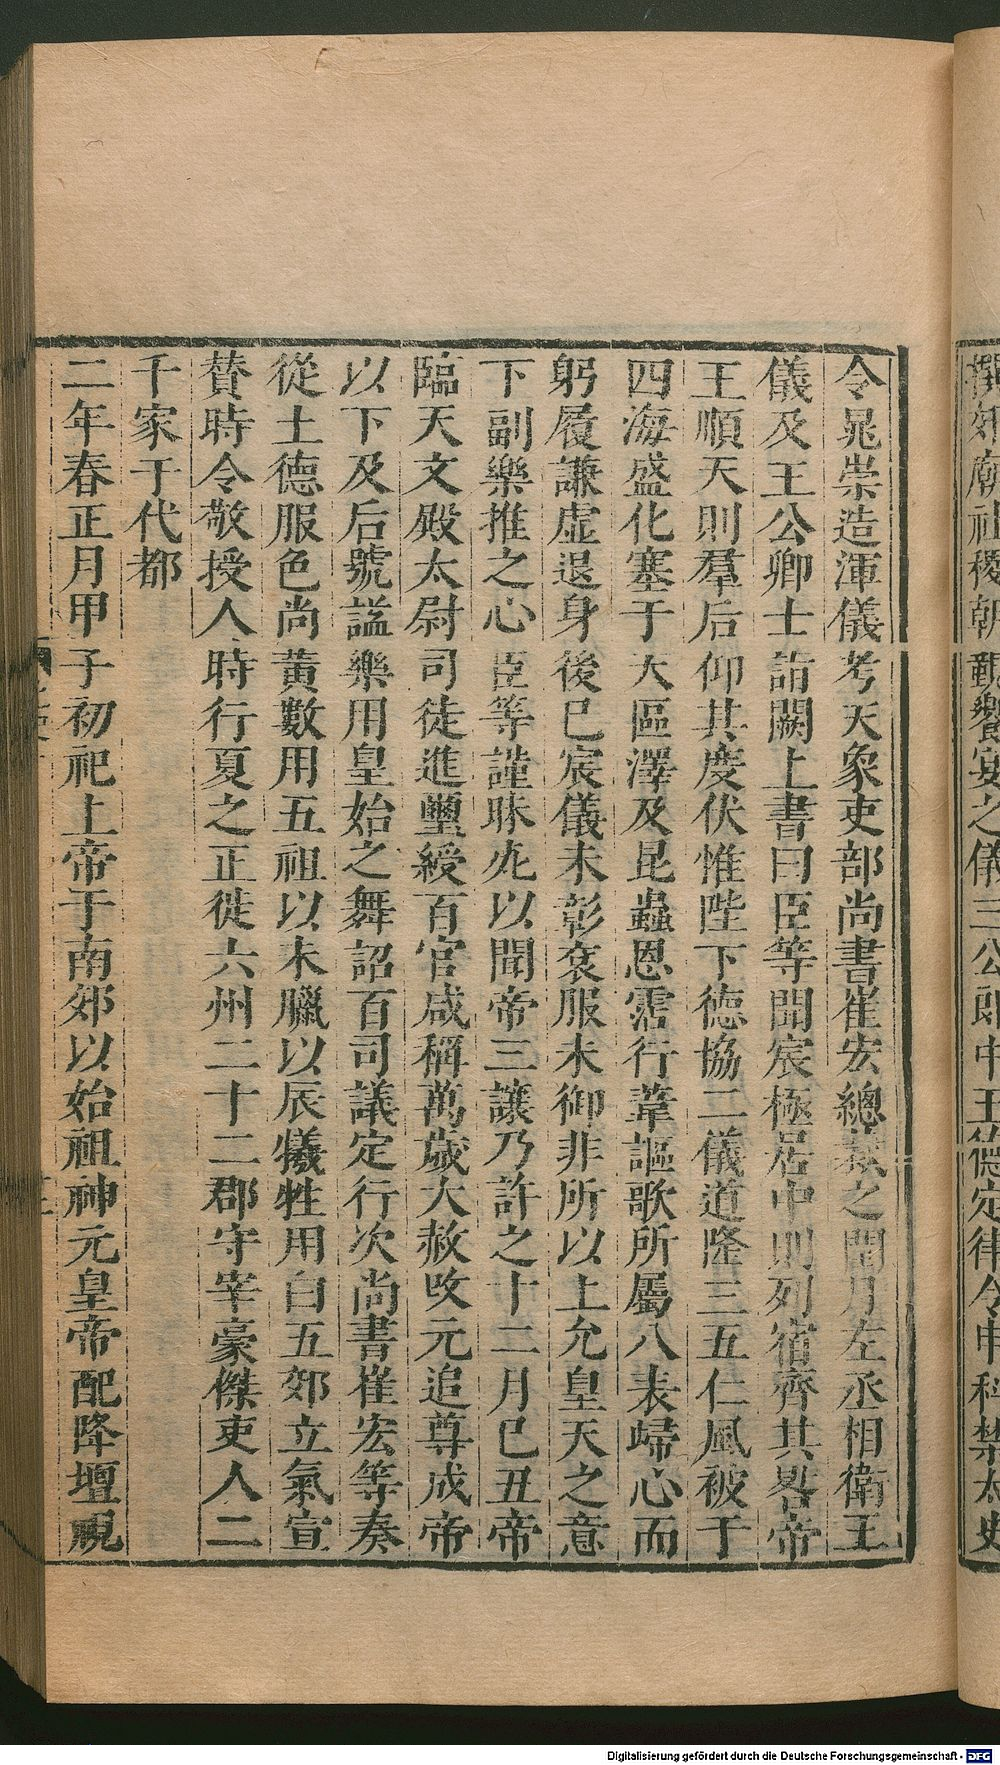 撰郊廟社稷朝覲饗宴之儀三公郎中王德定律令申科禁太史
令晁崇造渾儀考天象吏部尚書崔宏總裁之閏月左丞相衛王
儀及王公卿士詣闕上書曰臣等聞宸極居中則列宿齊其晷帝
王順天則羣后仰其度伏惟陛下德協二儀道隆三五仁風被于
四海盛化塞于大區澤及昆蟲恩霑行葦謳歌所屬八表歸心而
躬履謙虛退身後已宸儀未彰衮服未御非所以上允皇天之意
下副樂推之心臣等謹昧死以聞帝三讓乃許之十二月己丑帝
臨天文殿太尉司徒進璽綬百官咸稱萬歲大赦改元追尊成帝
以下及后號謚樂用皇始之舞詔百司議定行次尚書崔宏等奏
從土德服色尚黃數用五祖以未臘以辰犧牲用白五郊立氣宣
賛時令敬授人時行夏之正徙六州二十二郡守宰豪傑吏人二
千家于代都
二年春正月甲子初祀上帝于南郊以始祖神元皇帝配降壇視
Digitalisierung gefördert durch die Deutsche Forschungsgemeinschaft - DFG